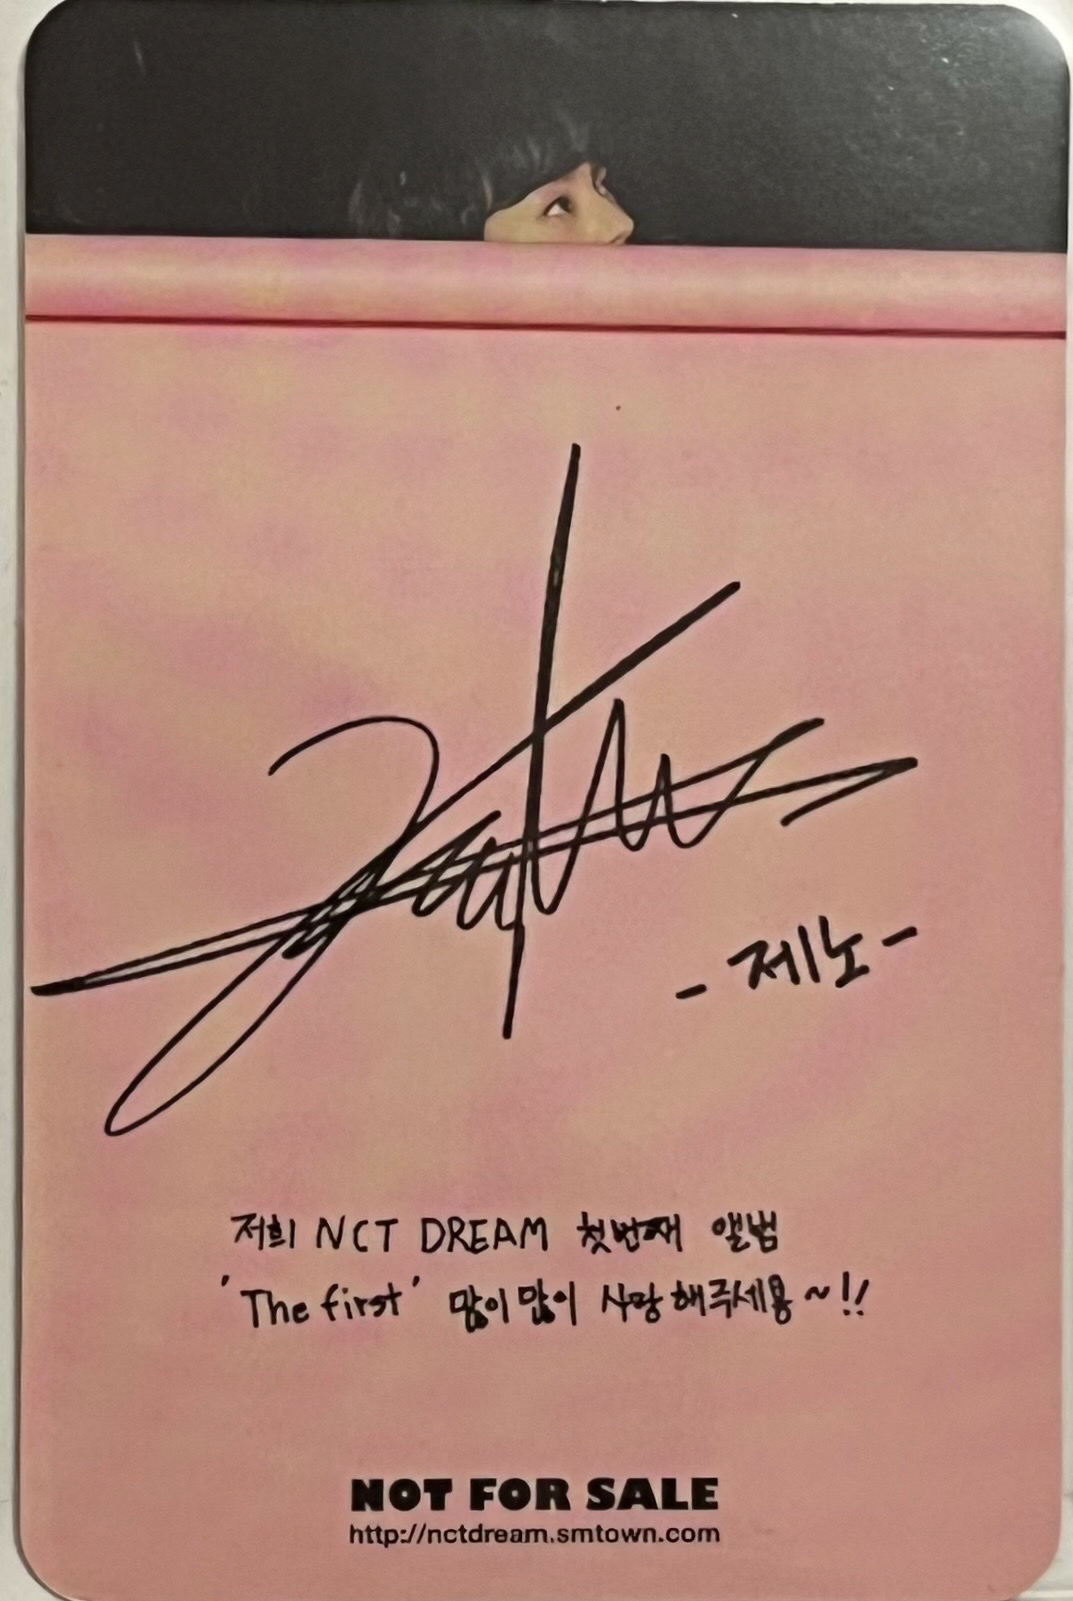 -제노-
저희 NCT DREAM 첫번째 앨범
'The first' 많이많이 사랑해주세용~!!
NOT FOR SALE
http://nctdream.smtown.com